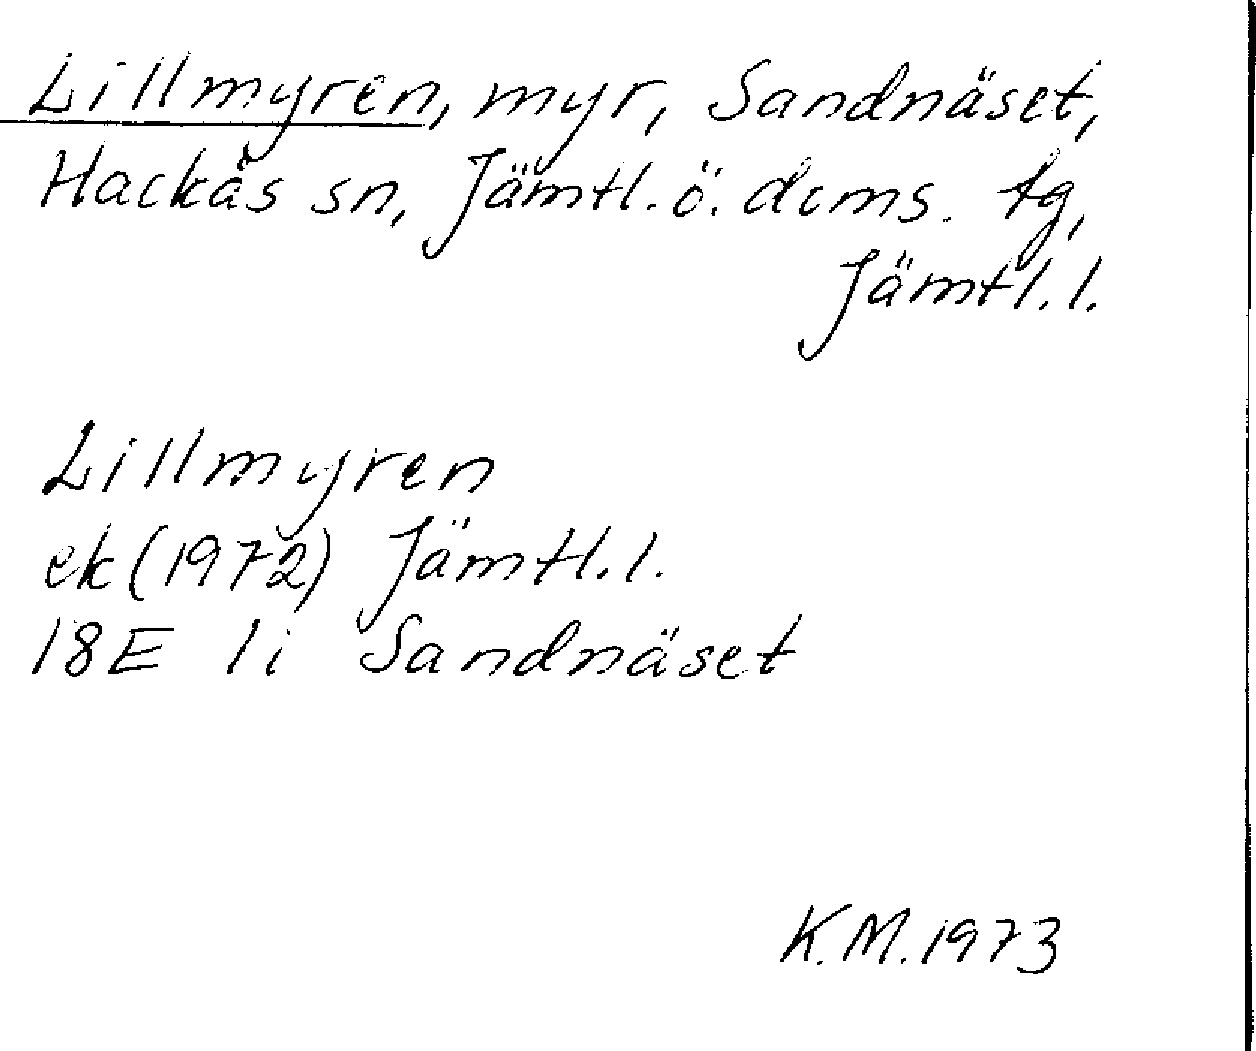 Lillmyren, myr, Sandnäset,
Hackås sn, Jämtl. ö. doms. tg,
Jämtl. l.
Lillmyren
ek (1972) Jämtl. l.
18E 1i Sandnäset
K.M. 1973